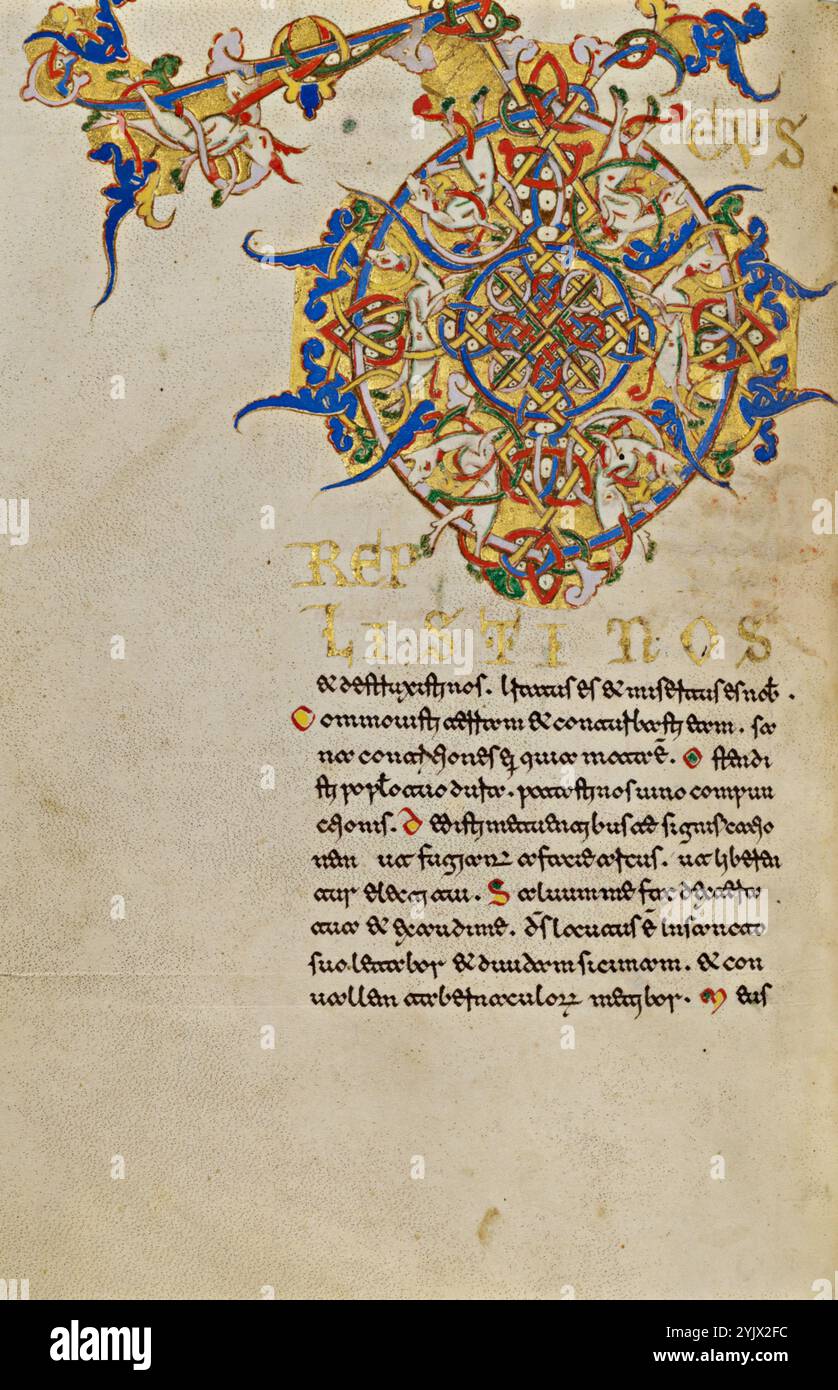 EUS
REP
LISTI NOS
& destruxisti nos. Iratus es & misertus es nob.
Commovisti terram & conturbasti eam. sa
na contritiones ei quia mota ē. Ostendi
sti poplo tuo dura. potasti nos uino compun
ctionis. Dedisti metuentibus te significatio
nem ut fugiant a facie arcus. ut liberen
tur electi tui. Saluum me fac dextera
tua & exaudi me. Ds locutus ē in sancto
suo letabor & diuidam sicimam. & con
uallem tabernaculorum metibor. Meus
alamy
Image ID: 2YJX2FC
www.alamy.com